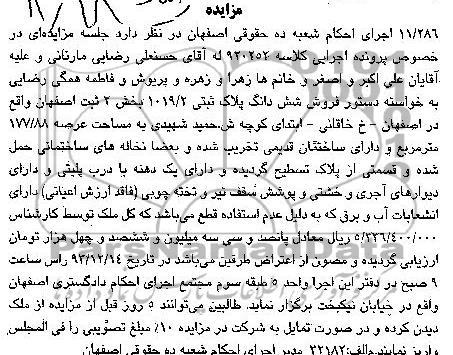 مزایده
۱۱/۲۸۶ اجرای احکام شعبه ده حقوقی اصفهان در نظر دارد جلسه مزایده‌ای در
خصوص پرونده اجرایی کلاسه ۹۲۰۲۵۲ له آقای حسنعلی رضایی مارنانی و علیه
آقایان علی اکبر و اصغر و خانم ها زهرا و زهره و پریوش و فاطمه همگی رضایی
به خواسته دستور فروش شش دانگ پلاک ثبتی ۱۰۱۹/۲ بخش ۲ ثبت اصفهان واقع
در اصفهان - خ خاقانی - ابتدای کوچه ش.حمید شهیدی به مساحت عرصه ۱۷۷/۸۸
مترمربع و دارای ساختمان قدیمی تخریب شده و بعضا نخاله های ساختمانی حمل
شده و قسمتی از پلاک تسطیح گردیده و دارای یک دهنه با درب پلیتی و دارای
دیوارهای آجری و خشتی و پوشش سقف تیر و تخته چوبی (فاقد ارزش اعیانی) دارای
انشعابات آب و برق که به دلیل عدم استفاده قطع می‌باشد که کل ملک توسط کارشناس
۵/۳۳۶/۴۰۰/۰۰۰ ریال معادل پانصد و سی سه میلیون و ششصد و چهل هزار تومان
ارزیابی گردیده و مصون از اعتراض طرفین می‌باشد در تاریخ ۹۳/۱۲/۱۴ راس ساعت
۹ صبح در دفتر این اجرا واحد ۵ طبقه سوم مجتمع اجرای احکام دادگستری اصفهان
واقع در خیابان نیکبخت برگزار نماید. طالبین می‌توانند ۵ روز قبل از مزایده از ملک
دیدن کرده و در صورت تمایل به شرکت در مزایده ۱۰٪ مبلغ تصویبی را فی المجلس
واریز نمایند.م‌الف:۳۲۱۸۲ مدیر اجرای احکام شعبه ده حقوقی اصفهان